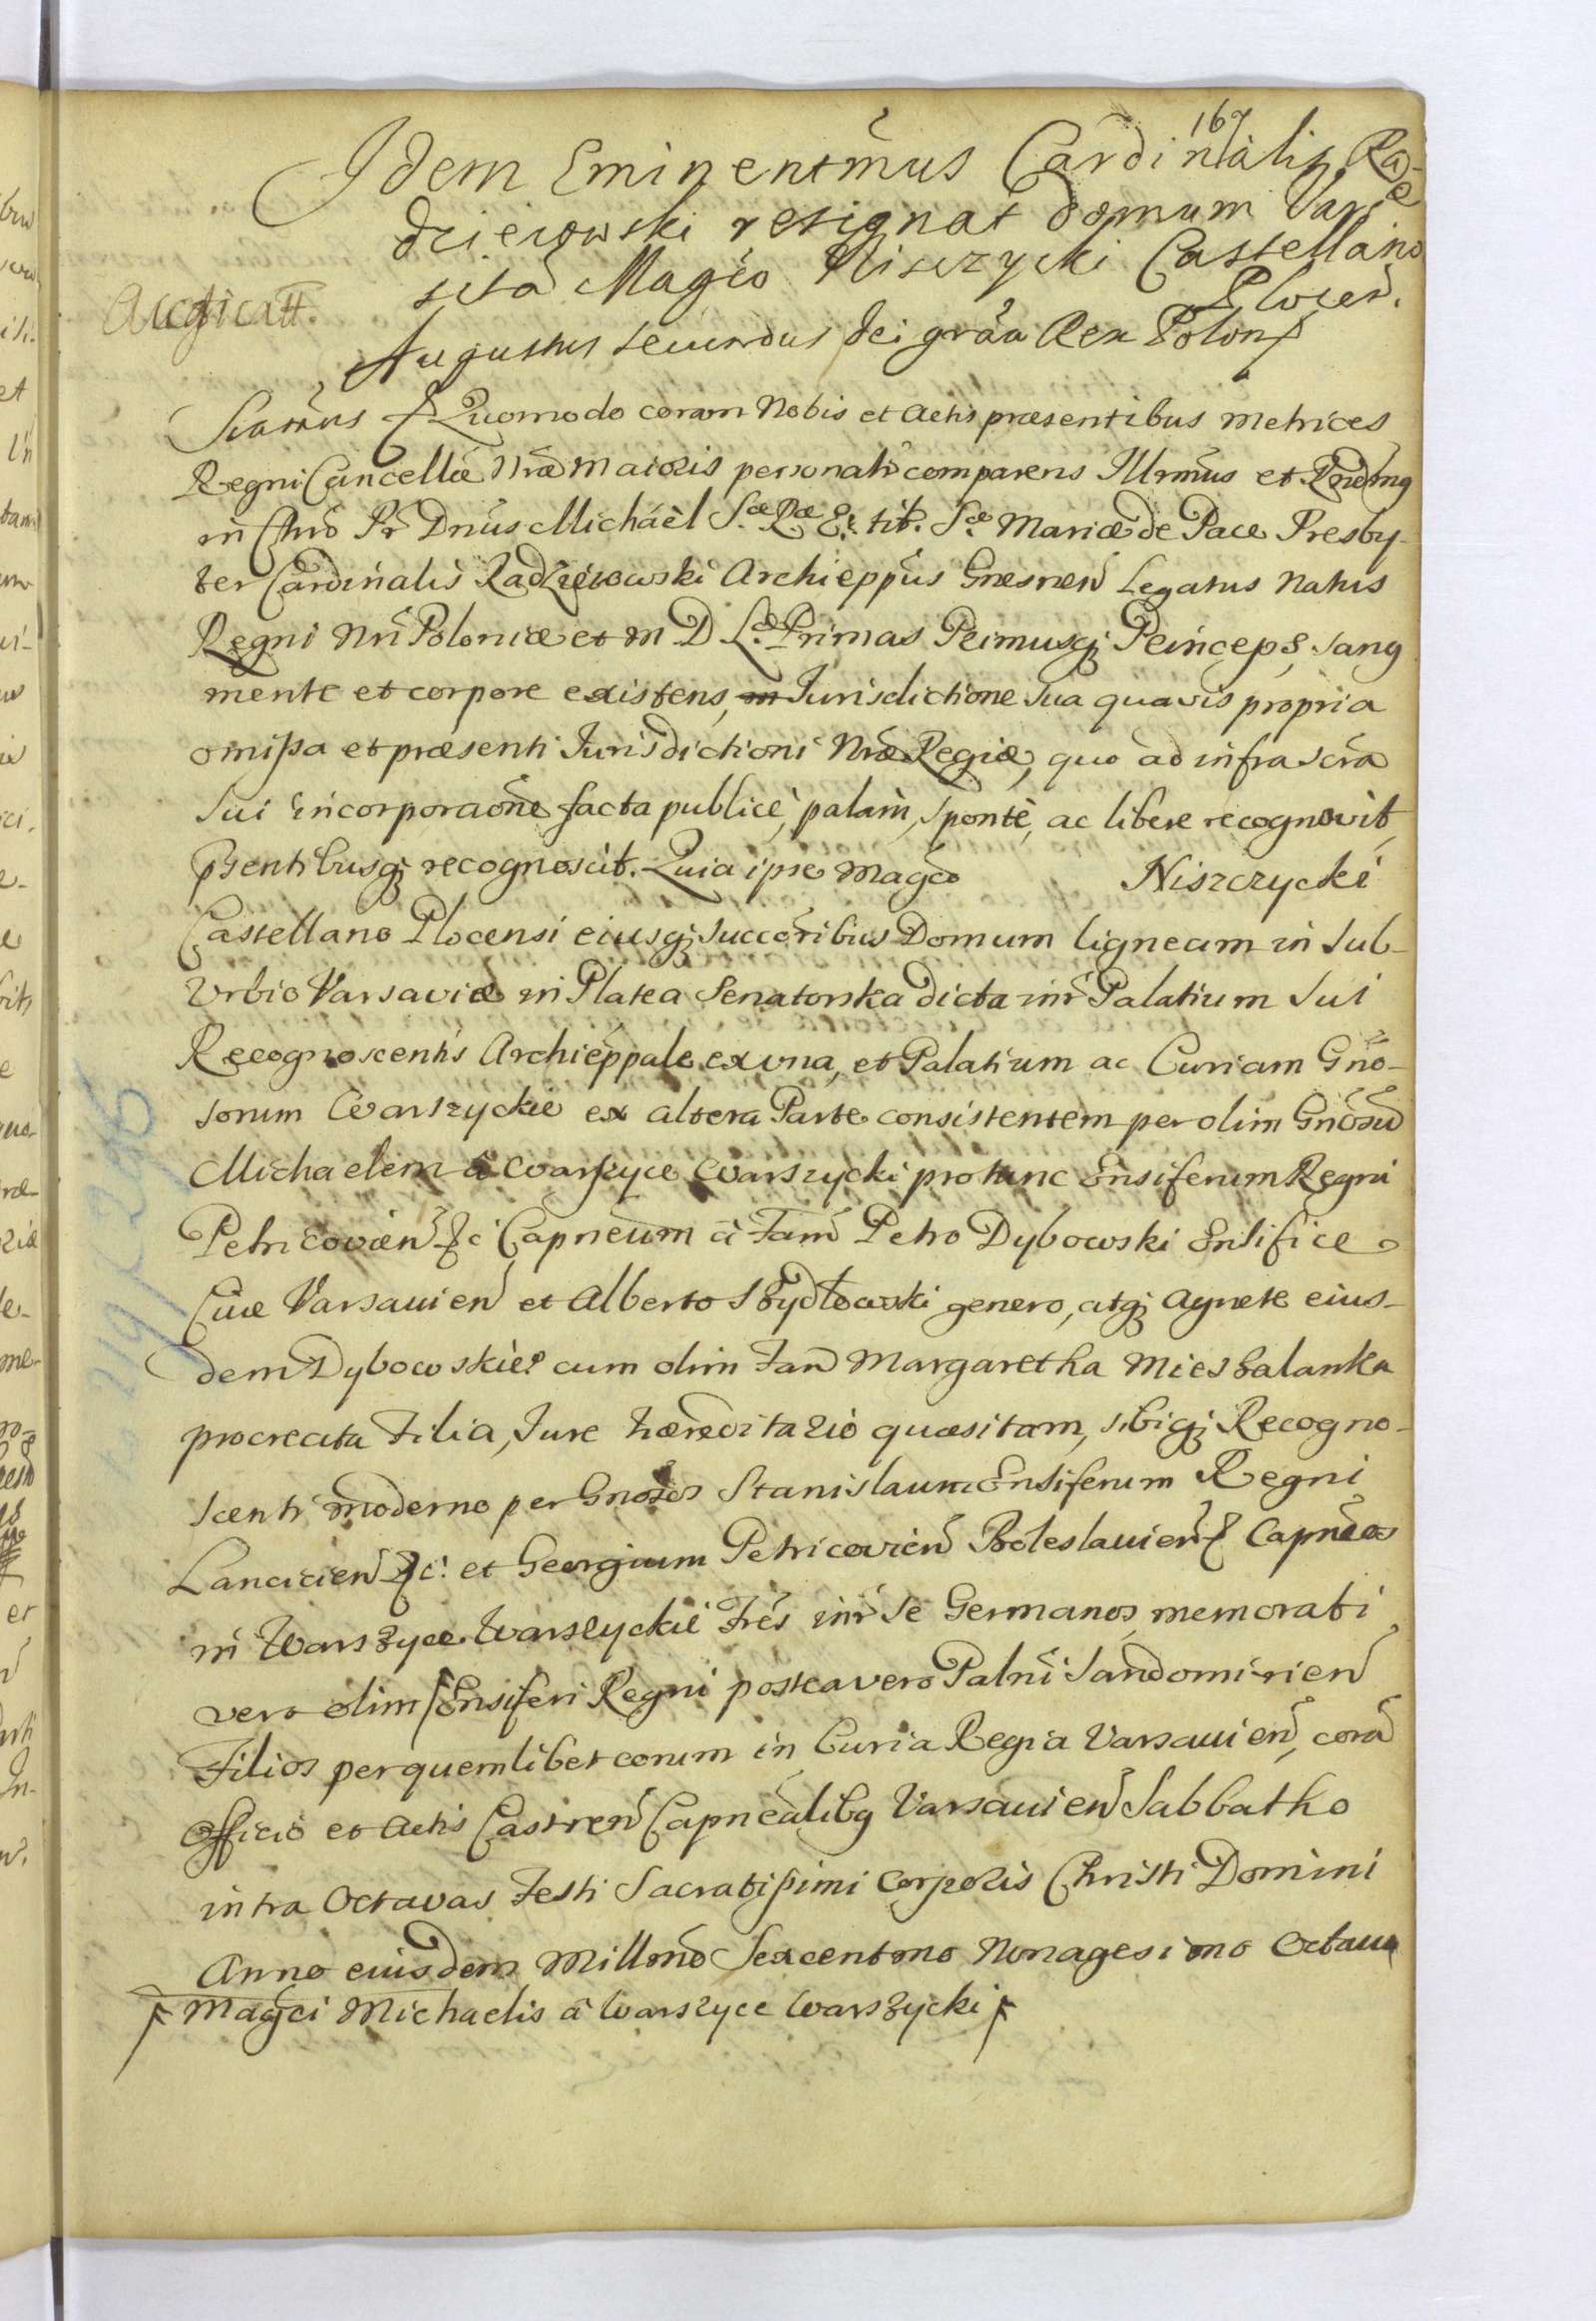 167
Idem Eminentm̃us Cardinalis Ra-
dzieiowski resignat domum Varsae
sitã Magc̃o Niszczycki Castellano
Plocen̄.
Augustus Secundus Dei grãa Rex Polon
Quomodo coram Nobis et Actis præsentibus Metrices
Regni Cancellæ Nræ Maioris personalr̃ comparens Illrm̃us et Rndm̃us
in Chrõ Pr̃ Dnũs Michäel Sæ Ræ E. tit. Sæ Mariæ de Pace Presby-
ter Cardinalis Radzieiowski Archieppũs Gnesnen̄ Legatus Natus
Regni Nrĩ Poloniæ et M D L. Primas Primusq; Princeps, sanus
mente et corpore existens, Jurisdictione sua quavis propria
omissa et præsenti Jurisdictioni Nræ Regiæ, quo ad infrascrã
sui incorporaõne facta publicè, palàm, spontè, ac libere recognovit,
pr̃sentibusq; recognoscit. Quia ipse Magc̃o Niszczycki
Castellano Plocensi eiusq; succor̃ibus Domum ligneam in sub-
Urbio Varsaviæ in Platea Senatorska dicta intr̃ Palatium sui
Recognoscentis Archieppale ex una, et Palatium ac Curiam Gño-
sorum Warszyckie ex altera Parte consistentem per olim Gnõsũ
Michaelem à Warszyce Warszycki protunc Ensiferum Regni
Petricovien̄ &c Capneum à Fam̃ Petro Dybowski Ensifice
Cive Varsavien̄ et Alberto Szydłowski genero, atq; Agnete eius-
dem Dybowskie cum olim Fam̃ Margaretha Mieszalanka
procreata Filia, Jure hæreditario quæsitam, sibiq; Recogno-
scenti moderno per Gnosos Stanislaum Ensiferum Regni
Lancicien̄ &c. et Georgium Petricovien̄ Boleslavien̄ Capneos
in Warszyce Warszyckie Fres̃ intr̃ se Germanos, memorati
vero olim Ensiferi Regni postea vero Palnĩ Sandomirien̄
Filios per quemlibet eorum in Curia Regia Varsavien̄, corã
Officio et Actis Castren̄ Capnealibq Varsavien̄ Sabbatho
intra Octavas Festi Sacratissimi Corporis Christi Domini
Anno eiusdem Millmo Sexcentmo Nonagesimo Octavo
Magc̃i Michaelis à Warszyce Warszycki